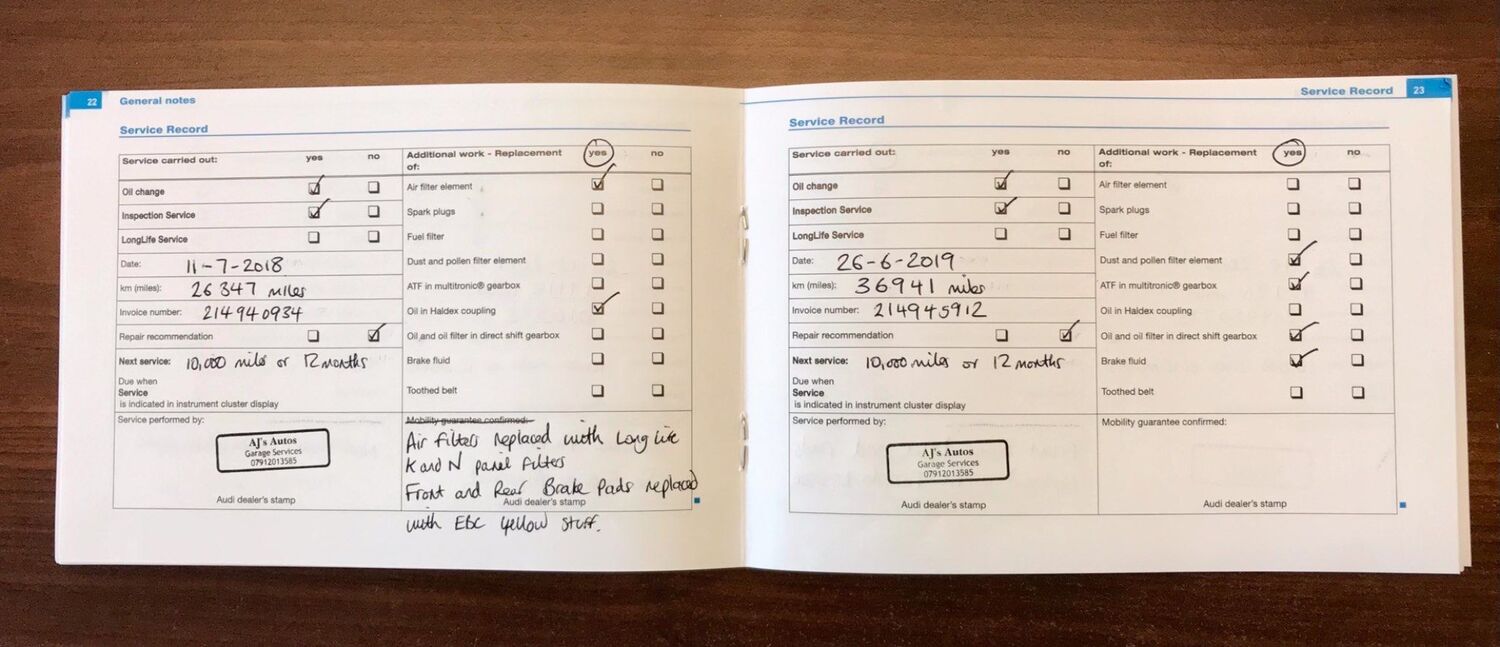 22 General notes
Service Record
Service carried out: yes no
Oil change
Inspection Service
LongLife Service
Date: 11-7-2018
km (miles): 26347 miles
Invoice number: 214940934
Repair recommendation
Next service: 10,000 miles or 12 months
Due when
Service
is indicated in instrument cluster display
Service performed by:
AJ's Autos
Garage Services
07912013585
Audi dealer's stamp
Additional work - Replacement of: yes no
Air filter element
Spark plugs
Fuel filter
Dust and pollen filter element
ATF in multitronic® gearbox
Oil in Haldex coupling
Oil and oil filter in direct shift gearbox
Brake fluid
Toothed belt
Mobility guarantee confirmed:
Air filters replaced with Long Life
K and N panel filters
Front and Rear Brake Pads replaced
Audi dealer's stamp
with EBC Yellow Stuff.
Service Record 23
Service Record
Service carried out: yes no
Oil change
Inspection Service
LongLife Service
Date: 26-6-2019
km (miles): 36941 miles
Invoice number: 214945912
Repair recommendation
Next service: 10,000 miles or 12 months
Due when
Service
is indicated in instrument cluster display
Service performed by:
AJ's Autos
Garage Services
07912013585
Audi dealer's stamp
Additional work - Replacement of: yes no
Air filter element
Spark plugs
Fuel filter
Dust and pollen filter element
ATF in multitronic® gearbox
Oil in Haldex coupling
Oil and oil filter in direct shift gearbox
Brake fluid
Toothed belt
Mobility guarantee confirmed:
Audi dealer's stamp